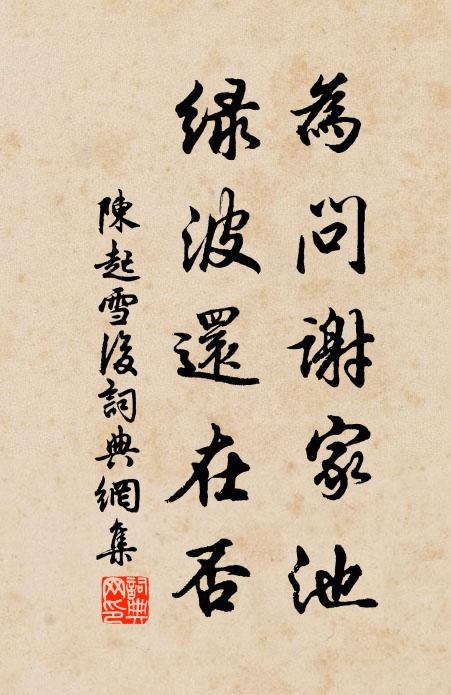 為問謝家池
綠波還在否
陳起雪後詞典網集
詞典网印